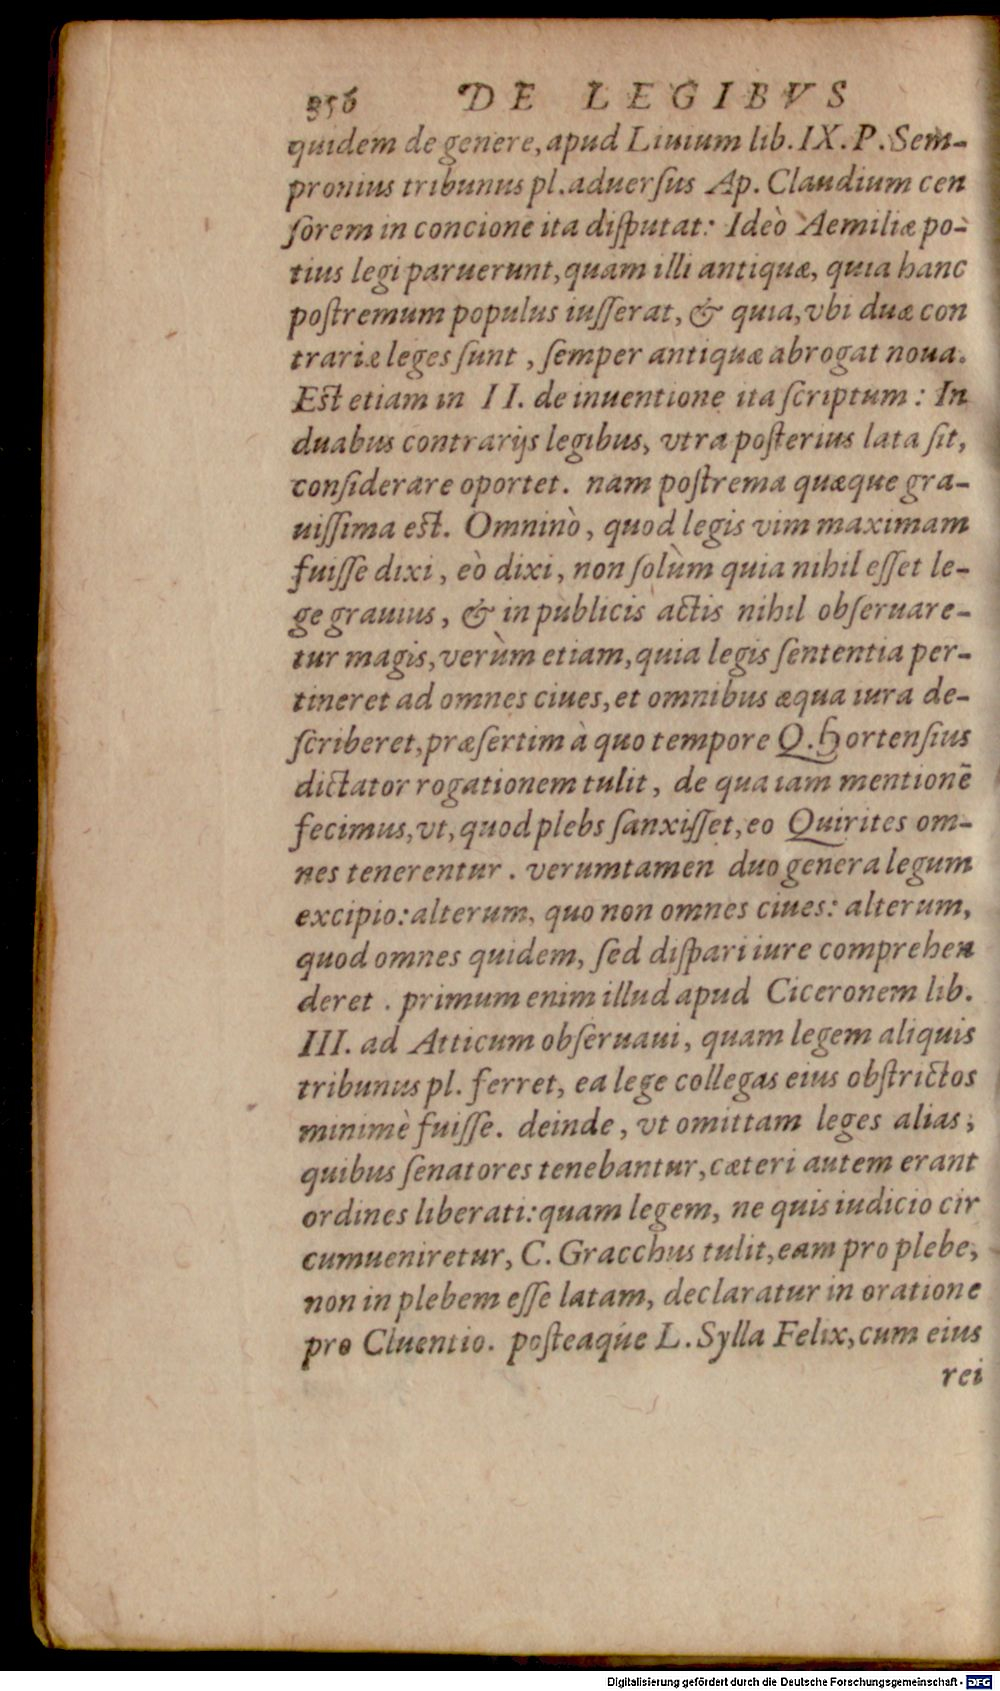 356 DE LEGIBVS
quidem de genere, apud Liuium lib. IX. P. Sem-
pronius tribunus pl. aduerſus Ap. Claudium cen
ſorem in concione ita diſputat: Ideò Aemiliæ po-
tius legi paruerunt, quam illi antiquæ, quia hanc
poſtremum populus iuſſerat, & quia, vbi duæ con
trariæ leges ſunt, ſemper antiquæ abrogat noua.
Eſt etiam in II. de inuentione ita ſcriptum: In
duabus contrarijs legibus, vtra poſterius lata ſit,
conſiderare oportet. nam poſtrema quæque gra-
uiſſima eſt. Omninò, quod legis vim maximam
fuiſſe dixi, eò dixi, non ſolùm quia nihil eſſet le-
ge grauius, & in publicis actis nihil obſeruare-
tur magis, verùm etiam, quia legis ſententia per-
tineret ad omnes ciues, et omnibus æqua iura de-
ſcriberet, præſertim à quo tempore Q. Hortenſius
dictator rogationem tulit, de qua iam mentionē
fecimus, vt, quod plebs ſanxiſſet, eo Quirites om-
nes tenerentur. verumtamen duo genera legum
excipio: alterum, quo non omnes ciues: alterum,
quod omnes quidem, ſed diſpari iure comprehen
deret. primum enim illud apud Ciceronem lib.
III. ad Atticum obſeruaui, quam legem aliquis
tribunus pl. ferret, ea lege collegas eius obſtrictos
minimè fuiſſe. deinde, vt omittam leges alias,
quibus ſenatores tenebantur, cæteri autem erant
ordines liberati: quam legem, ne quis iudicio cir
cumueniretur, C. Gracchus tulit, eam pro plebe,
non in plebem eſſe latam, declaratur in oratione
pro Cluentio. poſteaque L. Sylla Felix, cum eius
rei
Digitalisierung gefördert durch die Deutsche Forschungsgemeinschaft - DFG